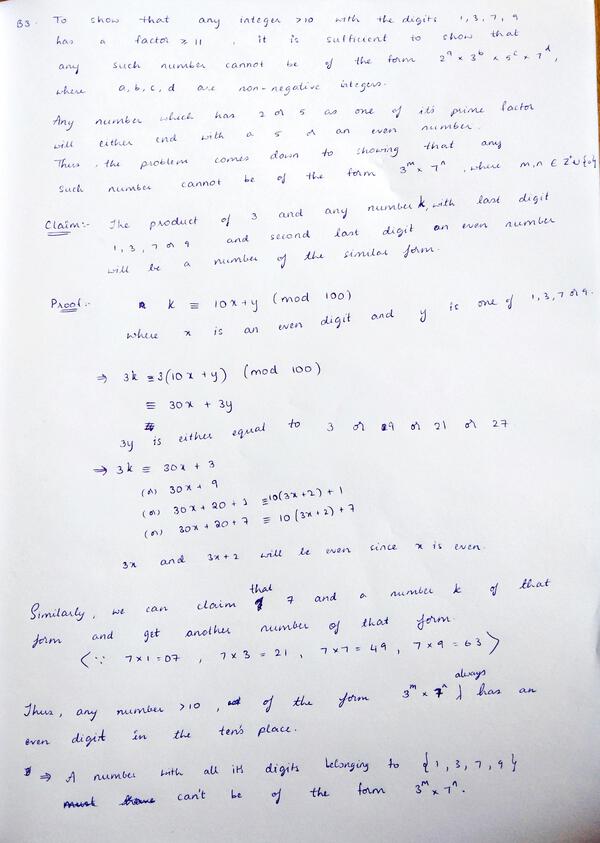 B3. To show that any integer >10 with the digits 1, 3, 7, 9
has a factor ≥ 11, it is sufficient to show that
any such number cannot be of the form 2^a × 3^b × 5^c × 7^d,
where a, b, c, d are non-negative integers.
Any number which has 2 or 5 as one of its prime factor
will either end with a 5 or an even number.
Thus, the problem comes down to showing that any
such number cannot be of the form 3^m × 7^n, where m, n ∈ Z⁺∪{0}
Claim:- The product of 3 and any number k, with last digit
1, 3, 7 or 9 and second last digit an even number
will be a number of the similar form.
Proof:- k ≡ 10x + y (mod 100)
where x is an even digit and y is one of 1, 3, 7 or 9.
⇒ 3k ≡ 3(10x + y) (mod 100)
≡ 30x + 3y
3y is either equal to 3 or 9 or 21 or 27
⇒ 3k ≡ 30x + 3
(or) 30x + 9
(or) 30x + 20 + 1 ≡ 10(3x+2) + 1
(or) 30x + 20 + 7 ≡ 10(3x+2) + 7
3x and 3x+2 will be even since x is even.
Similarly, we can claim that 7 and a number k of that
form and get another number of that form.
(∵ 7×1 = 07, 7×3 = 21, 7×7 = 49, 7×9 = 63)
Thus, any number >10, of the form 3^m × 7^n always has an
even digit in the ten's place.
⇒ A number with all its digits belonging to {1, 3, 7, 9}
can't be of the form 3^m × 7^n.